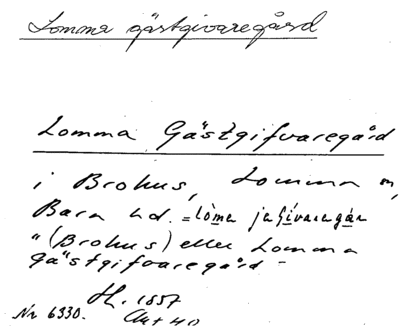 Lomma gästgivaregård
Lomma Gästgifvaregård
i Brohus, Lomma sn,
Bara hd. =lòma jaſìvaregår
"(Brohus) eller Lomma
gästgifvaregård"
1857
Nr 6330. Akt 40